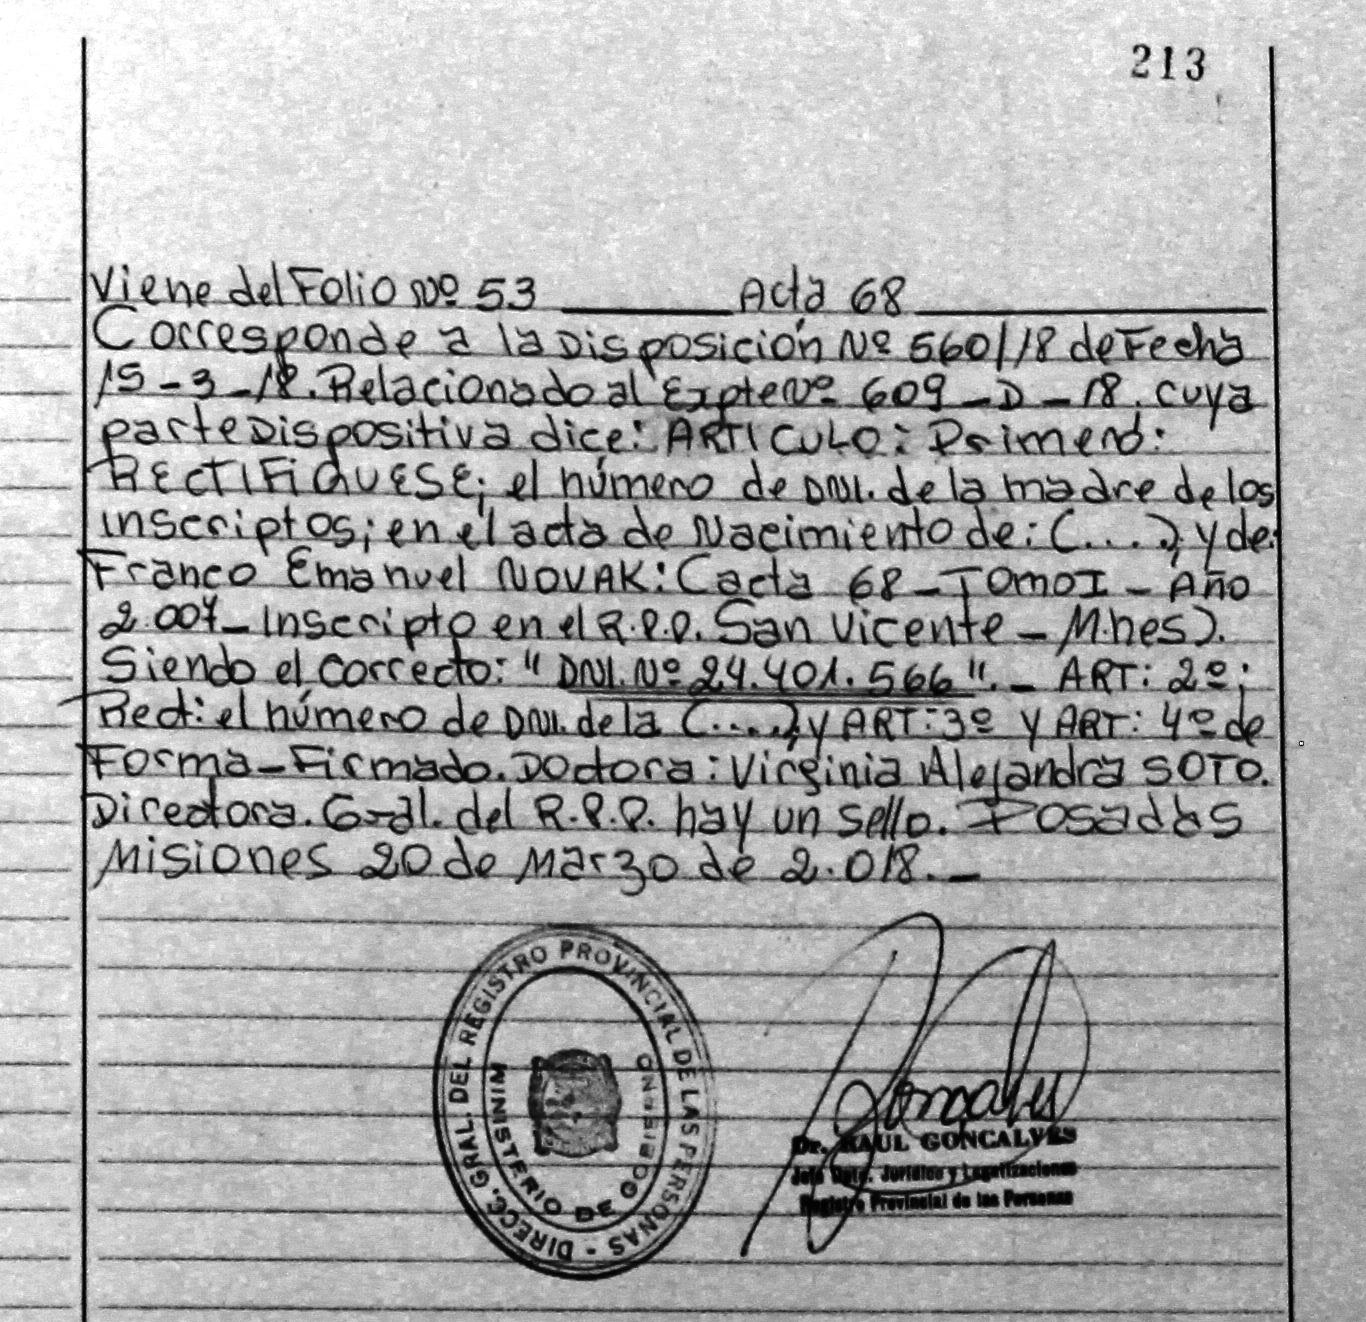 213
Viene del Folio Nº 53 ______ Acta 68 ______
Corresponde a la Disposición Nº 560/18 de Fecha
15-3-18. Relacionado al Expte Nº 609_D_18. cuya
parte Dispositiva dice: ARTICULO: Primero:
RECTIFIQUESE; el número de DNI. de la madre de los
inscriptos; en el acta de Nacimiento de: (....); y de:
Franco Emanuel NOVAK: (acta 68_TOMO I_Año
2.007_Inscripto en el R.P.P. San Vicente_M.nes).
Siendo el correcto: "DNI. Nº 24.401.566"._ ART: 2º;
Rect: el número de DNI. de la (....); y ART: 3º y ART: 4º de
Forma_Firmado. Doctora: Virginia Alejandra SOTO.
Directora. Gral. del R.P.P. hay un sello. Posadas
Misiones 20 de Marzo de 2.018._
DIRECC. GRAL. DEL REGISTRO PROVINCIAL DE LAS PERSONAS -
MINISTERIO DE GOBIERNO
Goncalves
Dr. RAUL GONCALVES
Jefe Dpto. Jurídico y Legalizaciones
Registro Provincial de las Personas